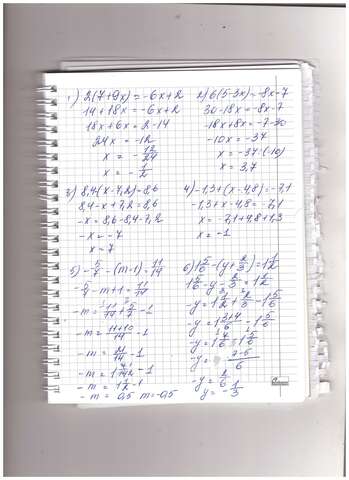 1) 2(7+9x)=-6x+2
14+18x=-6x+2
18x+6x=2-14
24x=-12
x=-12/24
x=-1/2
2) 6(5-3x)=-8x-7
30-18x=-8x-7
-18x+8x=-7-30
-10x=-37
x=-37:(-10)
x=3,7
3) 8,4-(x-7,2)=8,6
8,4-x+7,2=8,6
-x=8,6-8,4-7,2
-x=-7
x=7
4) -1,3+(x-4,8)=-7,1
-1,3+x-4,8=-7,1
x=-7,1+4,8+1,3
x=-1
5) -5/7-(m-1)=11/14
-5/7-m+1=11/14
-m=11/14+5/7-1
-m=11+10/14-1
-m=21/14-1
-m=1 7/14-1
-m=1 1/2-1
-m=0,5 m=-0,5
6) 1 5/6-(y+2/3)=1 1/2
1 5/6-y-2/3=1 1/2
-y=1 1/2+2/3-1 5/6
-y=1 3+4/6-1 5/6
-y=1 7/6-1 5/6
-y=7-5/6
-y=2/6
y=-1/3